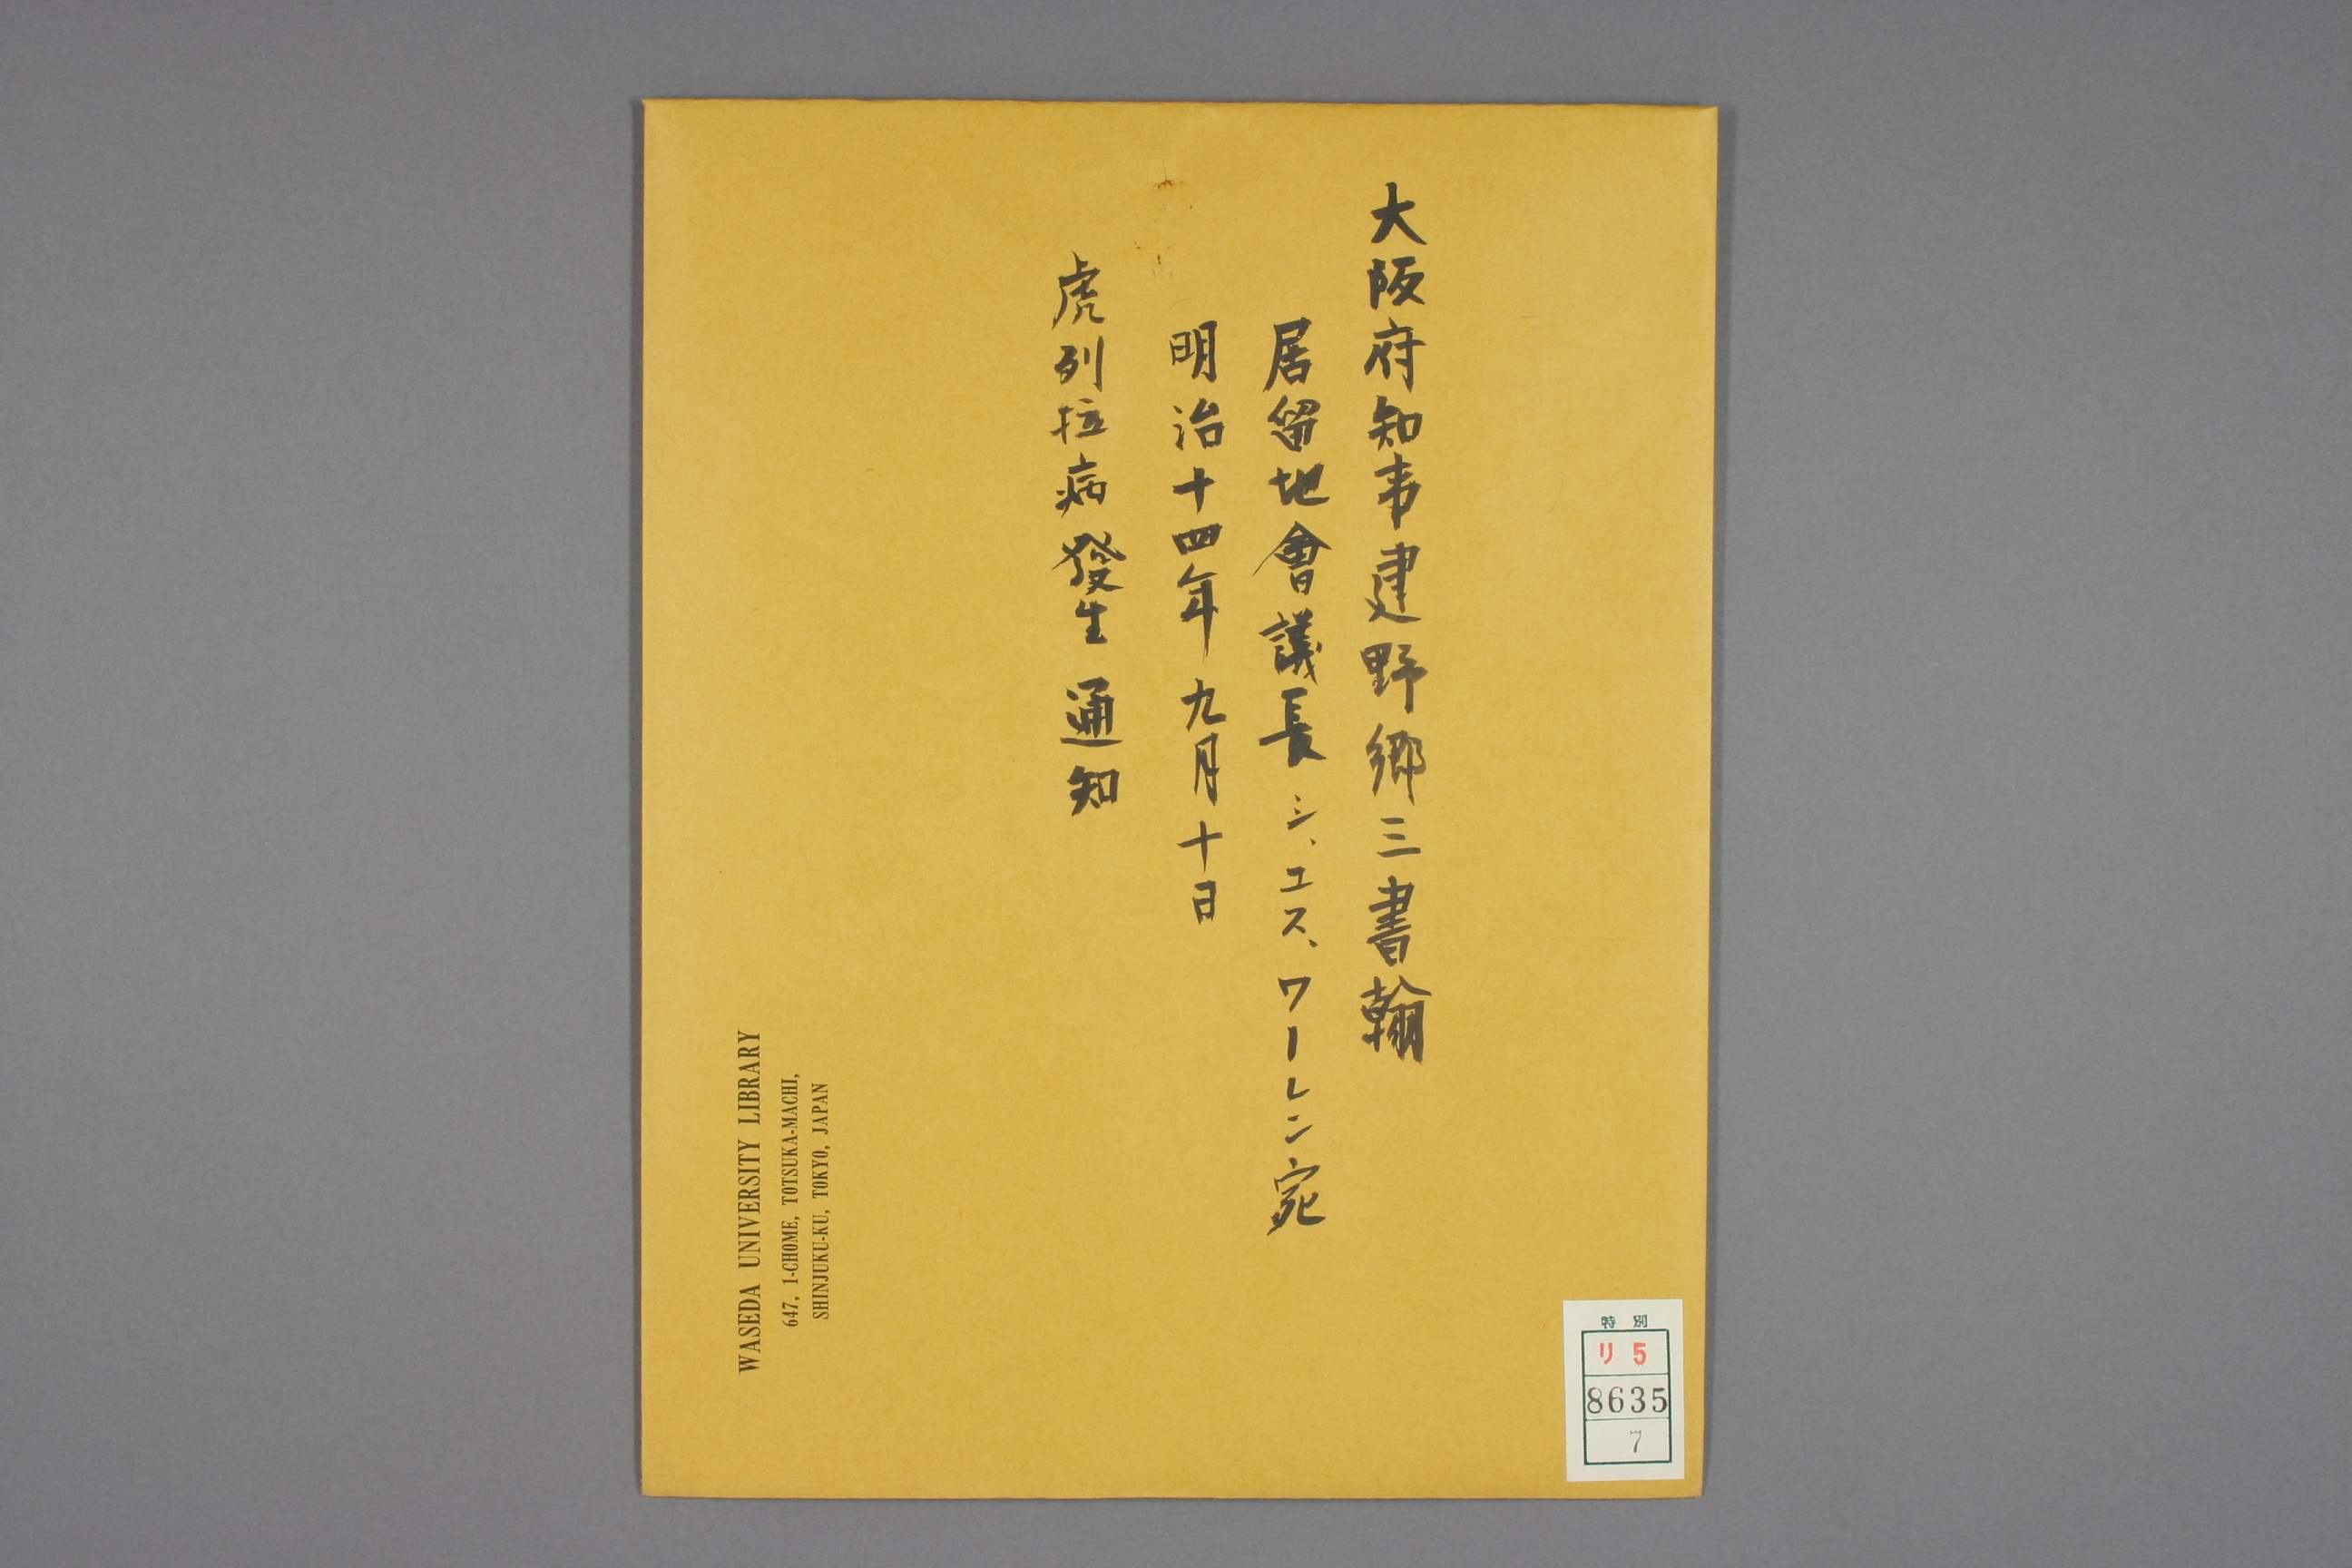 大阪府知事建野郷三書翰
居留地會議長シ、エス、ワーレン宛
明治十四年九月十日
虎列拉病發生通知
WASEDA UNIVERSITY LIBRARY
647, 1-CHOME, TOTSUKA-MACHI,
SHINJUKU-KU, TOKYO, JAPAN
特別
リ5
8635
7